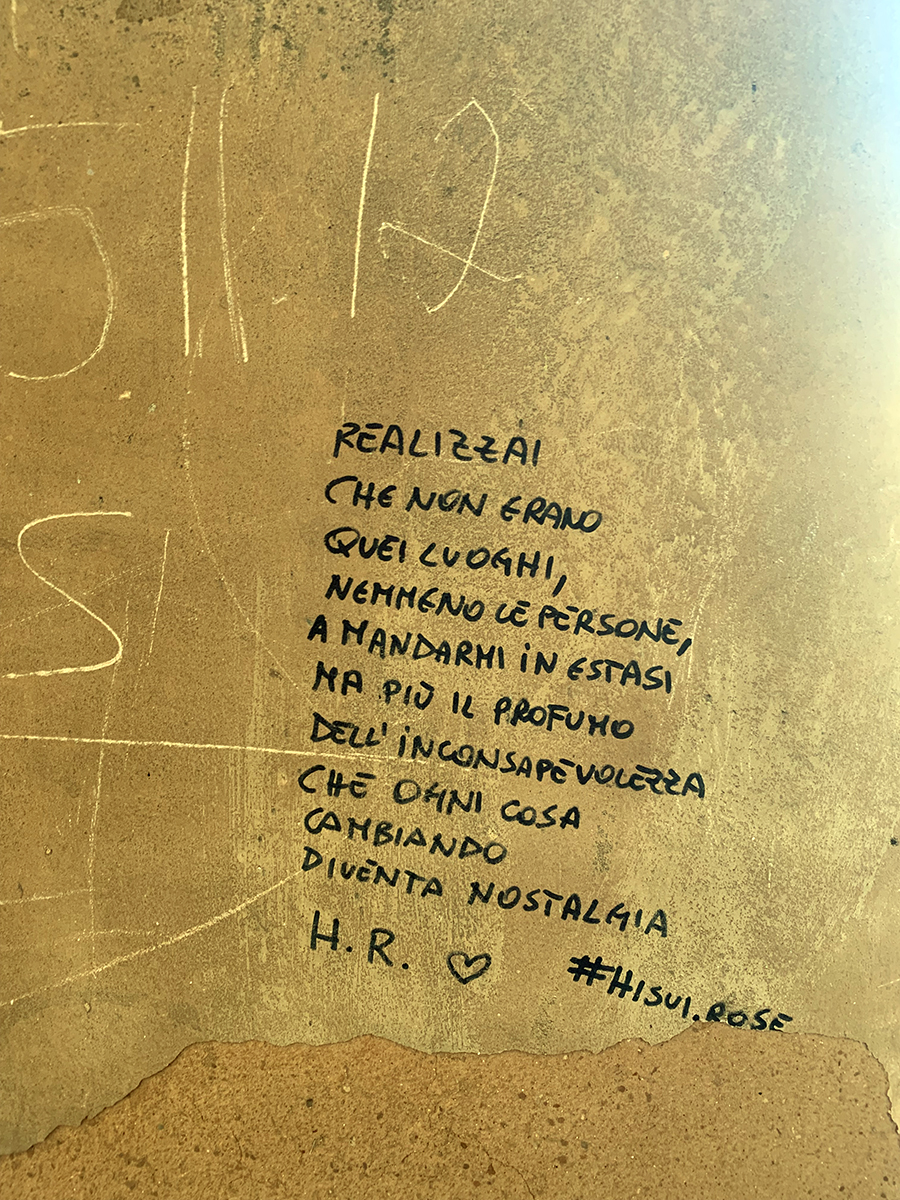 REALIZZAI
CHE NON ERANO
QUEI LUOGHI,
NEMMENO LE PERSONE,
A MANDARMI IN ESTASI
MA PIÙ IL PROFUMO
DELL'INCONSAPEVOLEZZA
CHE OGNI COSA
CAMBIANDO
DIVENTA NOSTALGIA
H. R. ♡
#HISUI.ROSE